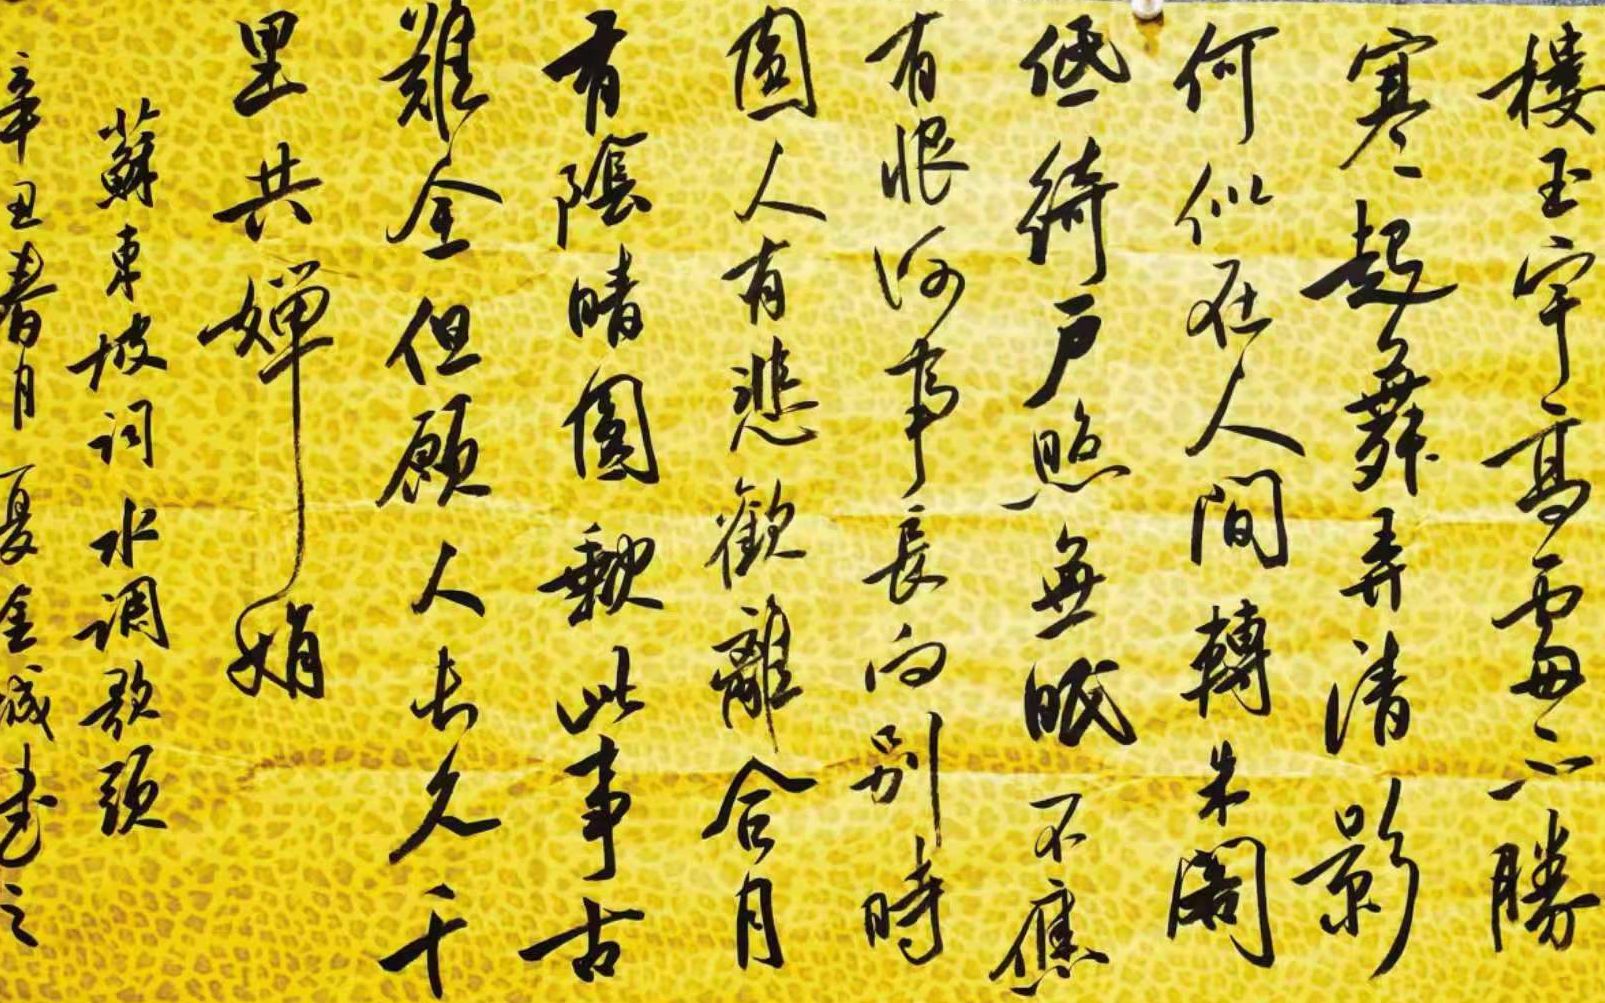 樓玉宇高處不勝
寒起舞弄清影
何似在人間轉朱閣
低綺戶照無眠不應
有恨何事長向別時
圓人有悲歡離合月
有陰晴圓缺此事古
難全但願人長久千
里共嬋娟
蘇東坡詞水調歌頭
辛丑春月夏金書之